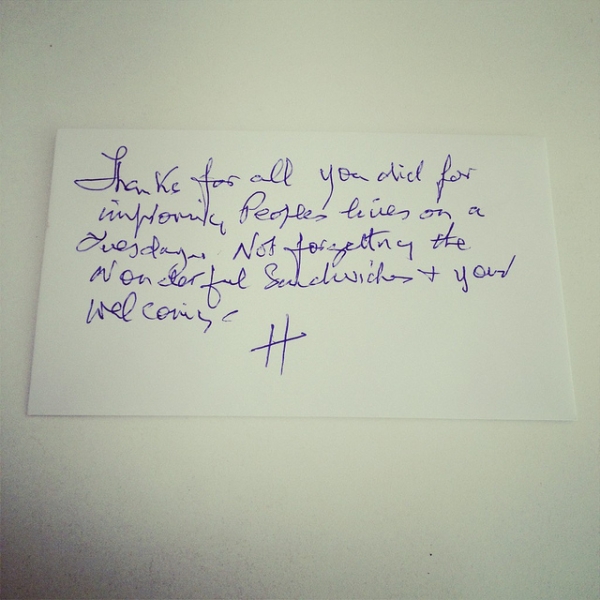 Thanks for all you did for
improving Peoples lives on a
Tuesday. Not forgetting the
Wonderful Sandwiches + your
welcoming
H